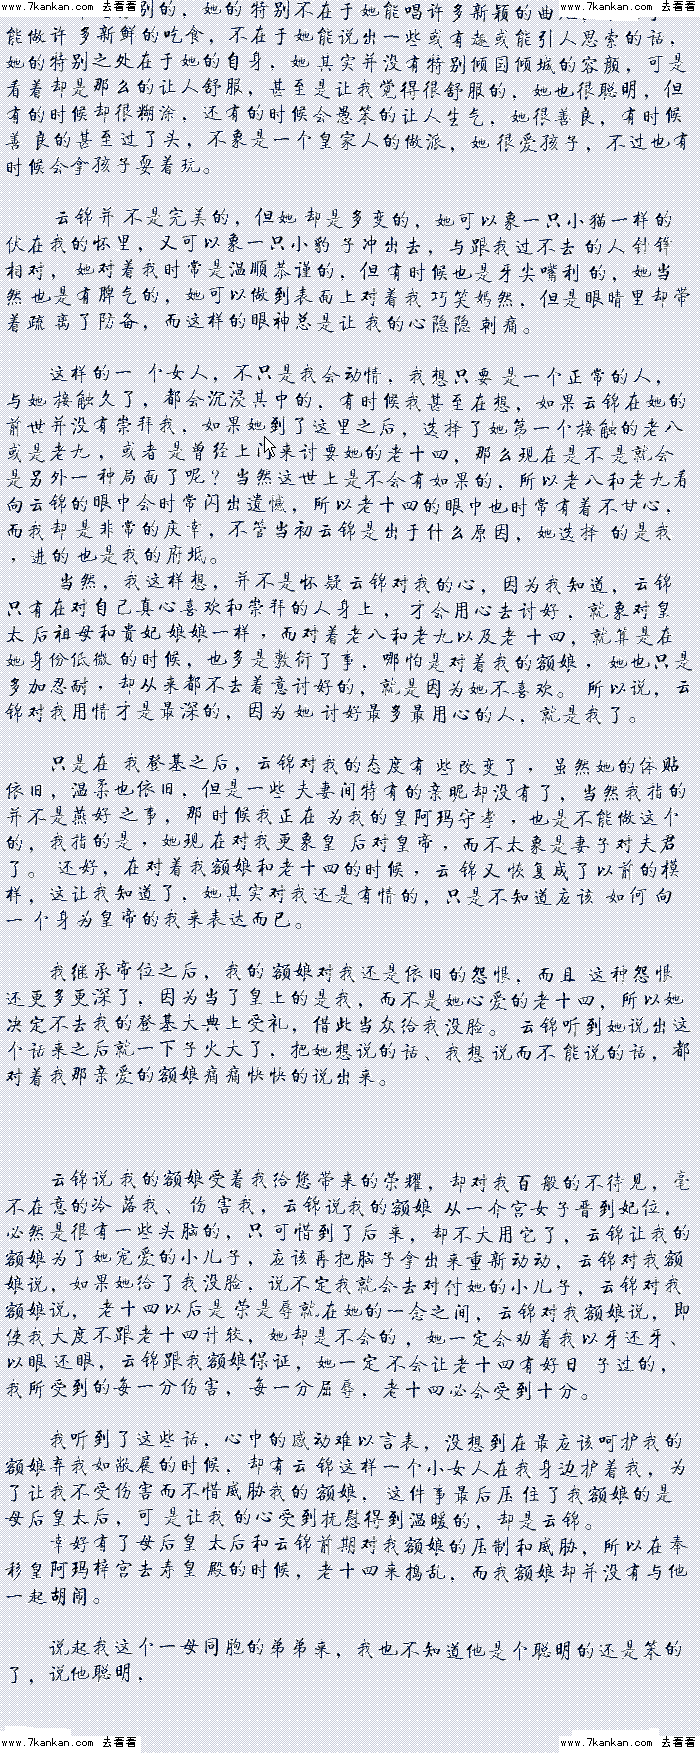 www.7kankan.com 去看看 www.7kankan.com 去看看
别的，她的特别不在于她能唱许多新颖的曲
能做许多新鲜的吃食，不在于她能说出一些或有趣或能引人思索的话，
她的特别之处在于她的自身，她其实并没有特别倾国倾城的容颜，可是
看着却是那么的让人舒服，甚至是让我觉得很舒服的，她也很聪明，但
有的时候却很糊涂，还有的时候会愚笨的让人生气，她很善良，有时候
善良的甚至过了头，不象是一个皇家人的做派，她很爱孩子，不过也有
时候会拿孩子耍着玩。
云锦并不是完美的，但她却是多变的，她可以象一只小猫一样的
伏在我的怀里，又可以象一只小豹子冲出去，与跟我过不去的人针锋
相对，她对着我时常是温顺恭谨的，但有时候也是牙尖嘴利的，她当
然也是有脾气的，她可以做到表面上对着我巧笑嫣然，但是眼睛里却带
着疏离了防备，而这样的眼神总是让我的心隐隐刺痛。
这样的一个女人，不只是我会动情，我想只要是一个正常的人，
与她接触久了，都会沉浸其中的，有时候我甚至在想，如果云锦在她的
前世并没有崇拜我，如果她到了这里之后，选择了她第一个接触的老八
或是老九，或者是曾经上门来讨要她的老十四，那么现在是不是就会
是另外一种局面了呢？当然这世上是不会有如果的，所以老八和老九看
向云锦的眼中会时常闪出遗憾，所以老十四的眼中也时常有着不甘心，
而我却是非常的庆幸，不管当初云锦是出于什么原因，她选择的是我
，进的也是我的府坻。
当然，我这样想，并不是怀疑云锦对我的心，因为我知道，云锦
只有在对自己真心喜欢和崇拜的人身上，才会用心去讨好，就象对皇
太后祖母和贵妃娘娘一样，而对着老八和老九以及老十四，就算是在
她身份低微的时候，也多是敷衍了事，哪怕是对着我的额娘，她也只是
多加忍耐，却从来都不去着意讨好的，就是因为她不喜欢。所以说，云
锦对我用情才是最深的，因为她讨好最多最用心的人，就是我了。
只是在我登基之后，云锦对我的态度有些改变了，虽然她的体贴
依旧，温柔也依旧，但是一些夫妻间特有的亲昵却没有了，当然我指的
并不是燕好之事，那时候我正在为我的皇阿玛守孝，也是不能做这个
的，我指的是，她现在对我更象皇后对皇帝，而不太象是妻子对夫君
了。还好，在对着我额娘和老十四的时候，云锦又恢复成了以前的模
样，这让我知道了，她其实对我还是有情的，只是不知道应该如何向
一个身为皇帝的我来表达而已。
我继承帝位之后，我的额娘对我还是依旧的怨恨，而且这种怨恨
还更多更深了，因为当了皇上的是我，而不是她心爱的老十四，所以她
决定不去我的登基大典上受礼，借此当众给我没脸。云锦听到她说出这
个话来之后就一下子火大了，把她想说的话、我想说而不能说的话，都
对着我那亲爱的额娘痛痛快快的说出来。
云锦说我的额娘受着我给您带来的荣耀，却对我百般的不待见，毫
不在意的冷落我、伤害我，云锦说我的额娘从一介宫女子晋到妃位，
必然是很有一些头脑的，只可惜到了后来，却不大用它了，云锦让我的
额娘为了她宠爱的小儿子，应该再把脑子拿出来重新动动，云锦对我额
娘说，如果她给了我没脸，说不定我就会去对付她的小儿子，云锦对我
额娘说，老十四以后是荣是辱就在她的一念之间，云锦对我额娘说，即
使我大度不跟老十四计较，她却是不会的，她一定会劝着我以牙还牙、
以眼还眼，云锦跟我额娘保证，她一定不会让老十四有好日子过的，
我所受到的每一分伤害，每一分屈辱，老十四必会受到十分。
我听到了这些话，心中的感动难以言表，没想到在最应该呵护我的
额娘弃我如敝屣的时候，却有云锦这样一个小女人在我身边护着我，为
了让我不受伤害而不惜威胁我的额娘，这件事最后压住了我额娘的是
母后皇太后，可是让我的心受到抚慰得到温暖的，却是云锦。
幸好有了母后皇太后和云锦前期对我额娘的压制和威胁，所以在奉
移皇阿玛梓宫去寿皇殿的时候，老十四来捣乱，而我额娘却并没有与他
一起胡闹。
说起我这个一母同胞的弟弟来，我也不知道他是个聪明的还是笨的
了，说他聪明，
www.7kankan.com 去看看 www.7kankan.com 去看看